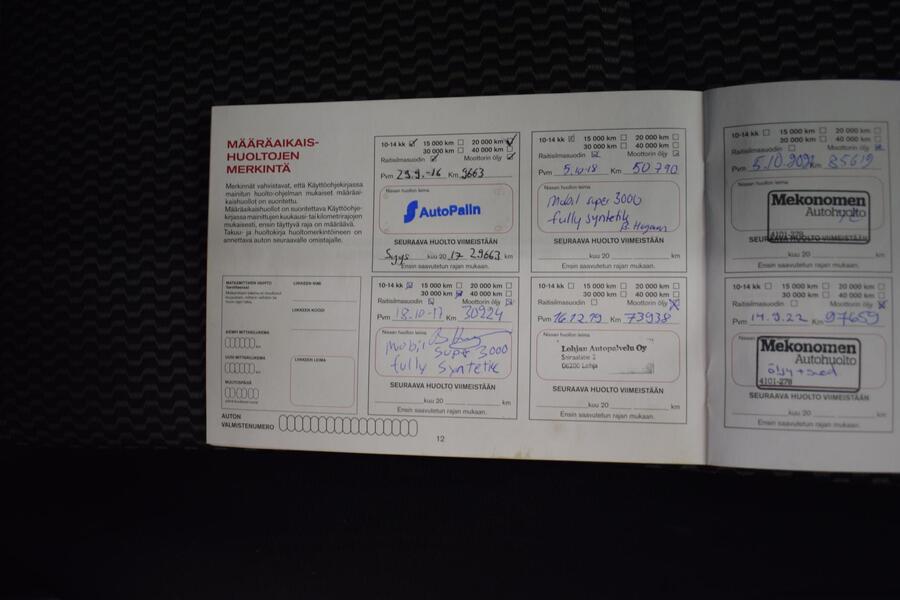 MÄÄRÄAIKAIS-
HUOLTOJEN
MERKINTÄ
Merkinnät vahvistavat, että Käyttöohjekirjassa
mainitun huolto-ohjelman mukaiset määräai-
kaishuollot on suoritettu.
Määräaikaishuollot on suoritettava Käyttöohje-
kirjassa mainittujen kuukausi- tai kilometrirajojen
mukaisesti, ensin täyttyvä raja on määräävä.
Takuu- ja huoltokirja huoltomerkintöineen on
annettava auton seuraavalle omistajalle.
MATKAMITTARIN VAIHTO
LIIKKEEN NIMI
LIIKKEEN KOODI
AIEMPI MITTARILUKEMA
UUSI MITTARILUKEMA
LIIKKEEN LEIMA
MUUTOSPÄIVÄ
AUTON
VALMISTENUMERO
10-14 kk 15 000 km 20 000 km
30 000 km 40 000 km
Raitisilmasuodin Moottorin öljy
Pvm 29.9.-16 Km 9663
Nissan huollon leima
AutoPalin
SEURAAVA HUOLTO VIIMEISTÄÄN
Syys kuu 20 17 29663 km
Ensin saavutetun rajan mukaan.
10-14 kk 15 000 km 20 000 km
30 000 km 40 000 km
Raitisilmasuodin Moottorin öljy
Pvm 18.10-17 Km 30224
Nissan huollon leima
Mobil super 3000
fully syntetic
SEURAAVA HUOLTO VIIMEISTÄÄN
kuu 20 km
Ensin saavutetun rajan mukaan.
12
10-14 kk 15 000 km 20 000 km
30 000 km 40 000 km
Raitisilmasuodin Moottorin öljy
Pvm 5.10-18 Km 50790
Nissan huollon leima
Mobil super 3000
fully syntetic
SEURAAVA HUOLTO VIIMEISTÄÄN
kuu 20 km
Ensin saavutetun rajan mukaan.
10-14 kk 15 000 km 20 000 km
30 000 km 40 000 km
Raitisilmasuodin Moottorin öljy
Pvm 16.12.19 Km 73938
Nissan huollon leima
Lohjan Autopalvelu Oy
08200 Lohja
SEURAAVA HUOLTO VIIMEISTÄÄN
kuu 20 km
Ensin saavutetun rajan mukaan.
10-14 kk 15 000 km 20 000 km
30 000 km 40 000 km
Raitisilmasuodin Moottorin öljy
Pvm 5.10. Km 85619
Nissan huollon leima
Mekonomen
Autohuolto
4101-278
SEURAAVA HUOLTO VIIMEISTÄÄN
kuu 20 km
Ensin saavutetun rajan mukaan.
10-14 kk 15 000 km 20 000 km
30 000 km 40 000 km
Raitisilmasuodin Moottorin öljy
Pvm 14.9.22 Km 97659
Nissan huollon leima
Mekonomen
Autohuolto
öljy +
4101-278
SEURAAVA HUOLTO VIIMEISTÄÄN
kuu 20 km
Ensin saavutetun rajan mukaan.